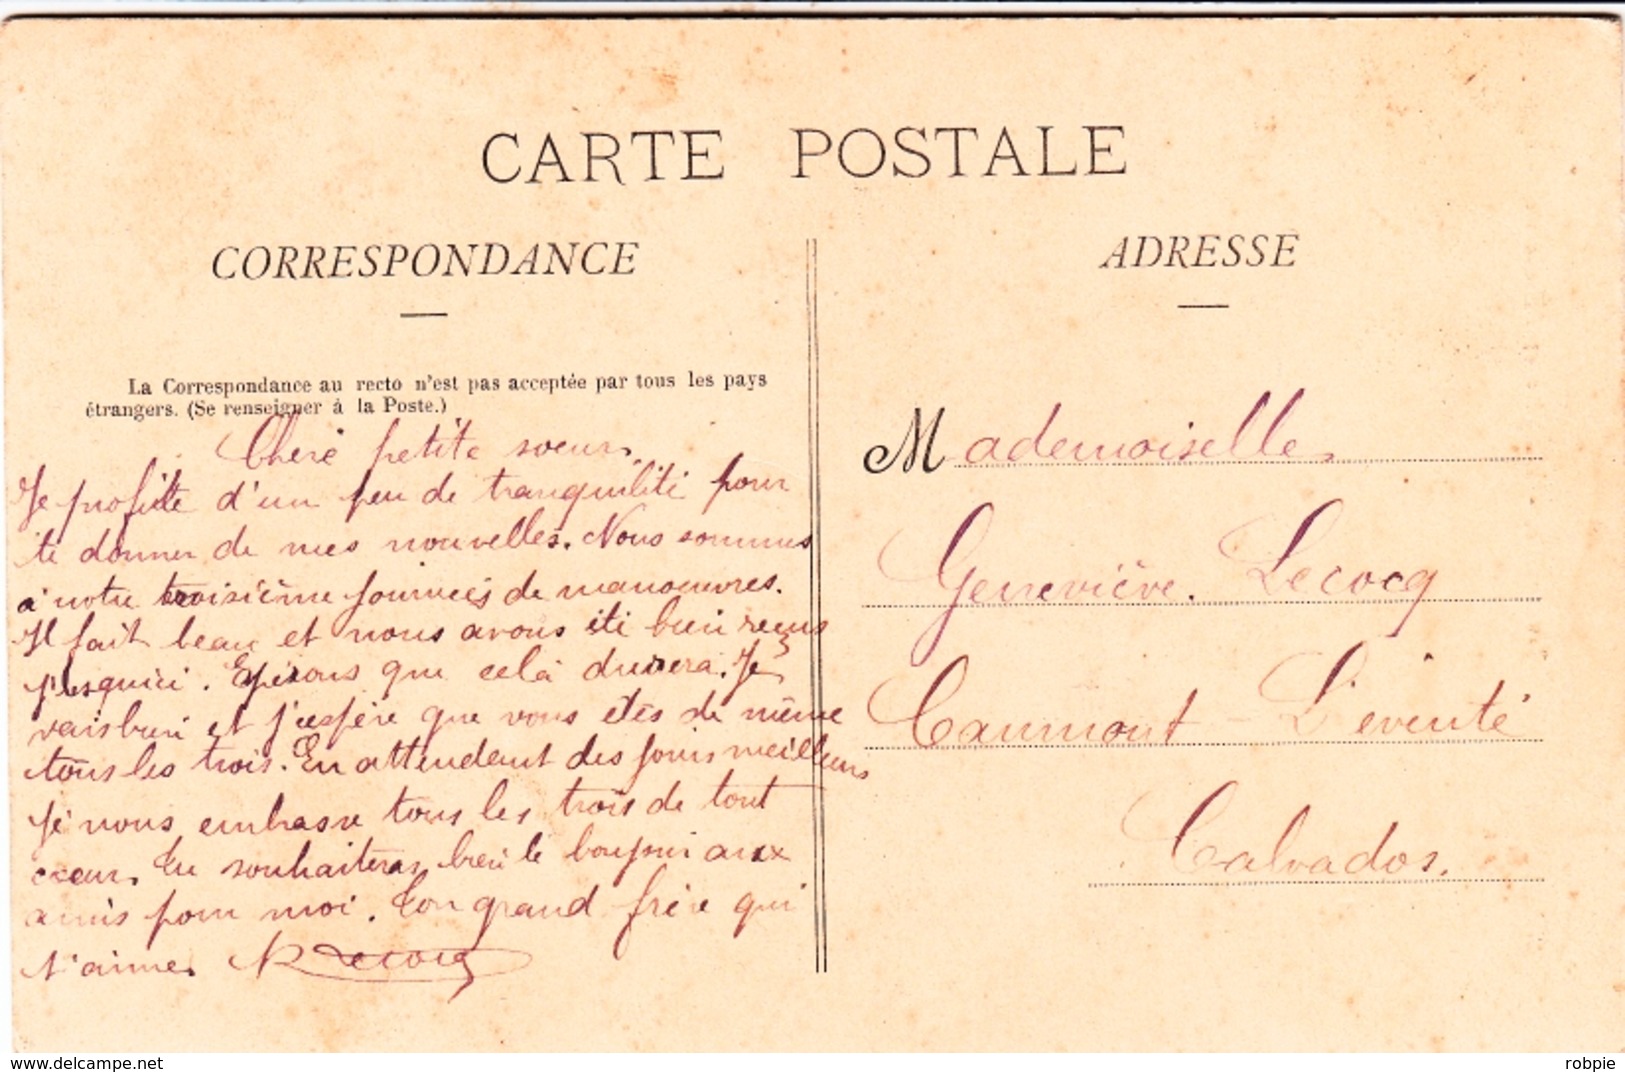 CARTE POSTALE
CORRESPONDANCE
La Correspondance au recto n'est pas acceptée par tous les pays
étrangers. (Se renseigner à la Poste.)
Chère petite soeur,
Je profite d'un peu de tranquilité pour
te donner de mes nouvelles. Nous sommes
à notre troisième journées de manoeuvres.
Il fait beau et nous avons été bien reçus
j'usquici. Espérons que celà durera. Je
vais bien et j'espère que vous êtes de même
tous les trois. En attendant des jours meilleurs
Je vous embrasse tous les trois de tout
coeur. Tu souhaiteras bien le bonjour aux
amis pour moi. Ton grand frère qui
t'aime. Lecocq
ADRESSE
Mademoiselle
Geneviève. Lecocq
Caumont L'eventé
Calvados.
www.delcampe.net
robpie